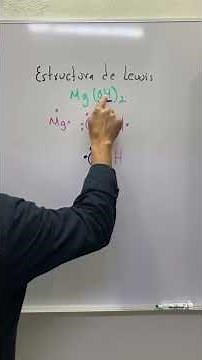 Estructura de Lewis
Mg(OH)2
Mg
H